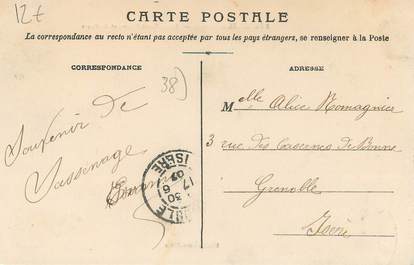 12€
CARTE POSTALE
La correspondance au recto n'étant pas acceptée par tous les pays étrangers, se renseigner à la Poste
CORRESPONDANCE
38)
Souvenir de
Sassenage
ISÈRE
17 30
6
ADRESSE
Melle Alice Romagnier
3 rue des Casernes de Bonne
Grenoble
Isère